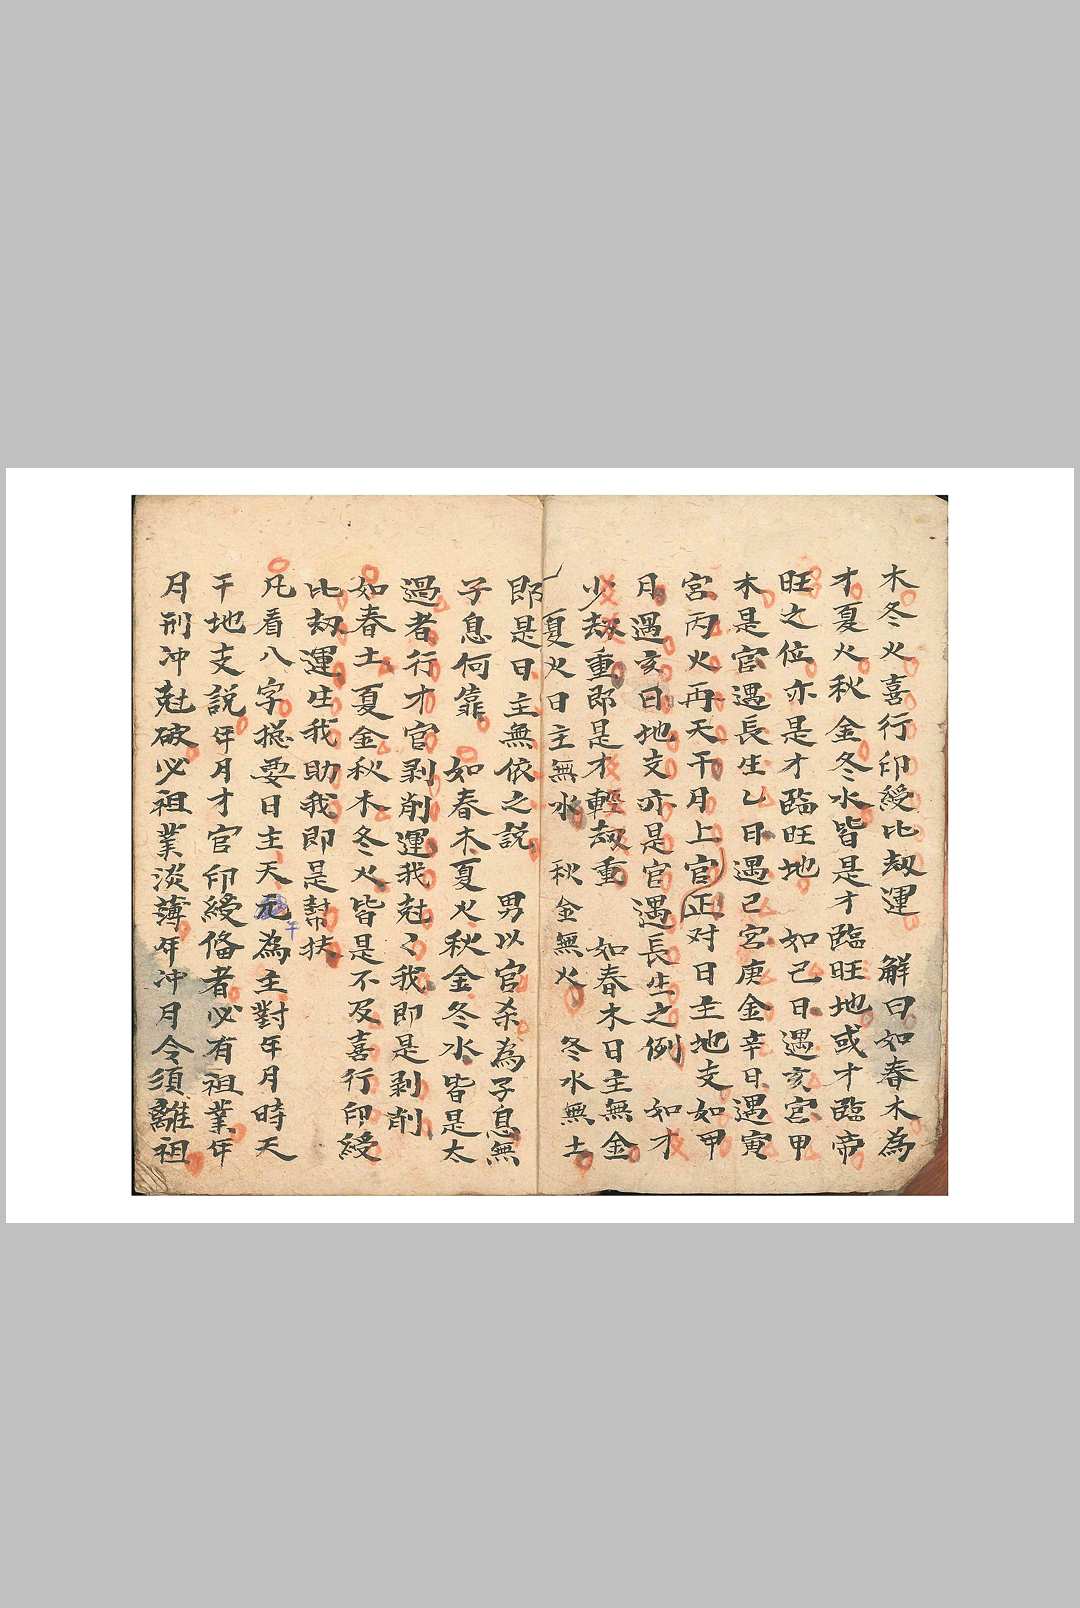 木冬火喜行印綬比刼運　解曰如春木為
才夏火秋金冬水皆是才臨旺地或才臨帝
旺之位亦是才臨旺地　如己日遇亥宮甲
木是官遇長生乙日遇巳宮庚金辛日遇寅
宮丙火再天干月上官正对日主地支如甲
月遇亥日地支亦是官遇長生之例　如才
少刼重即是才輕刼重　如春木日主無金
夏火日主無水　秋金無火　冬水無土
即是日主無依之説　男以官杀為子息無
子息何靠　如春木夏火秋金冬水皆是太
過者行才官剥削運我尅〻我即是剥削
如春土夏金秋木冬火皆是不及喜行印綬
比刼運生我助我即是幫扶
凡看八字捴要日主天為主對年月時天
干
干地支説年月才官印綬俻者必有祖業年
月刑冲尅破必祖業淡薄年冲月令須離祖